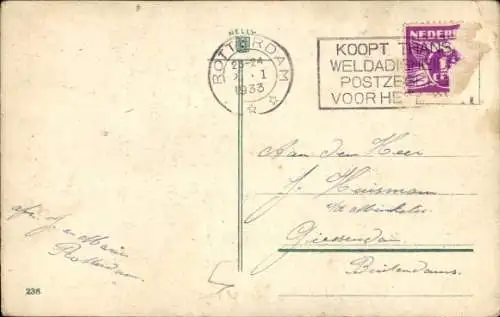 NELLY
ROTTERDAM
23-24
X . I
1933
KOOPT THANS
WELDADI
POSTZE
VOOR HE
NEDER
Aan den Heer
J. Huisman
Giessendam
Buitendams.
Rotterdam
236